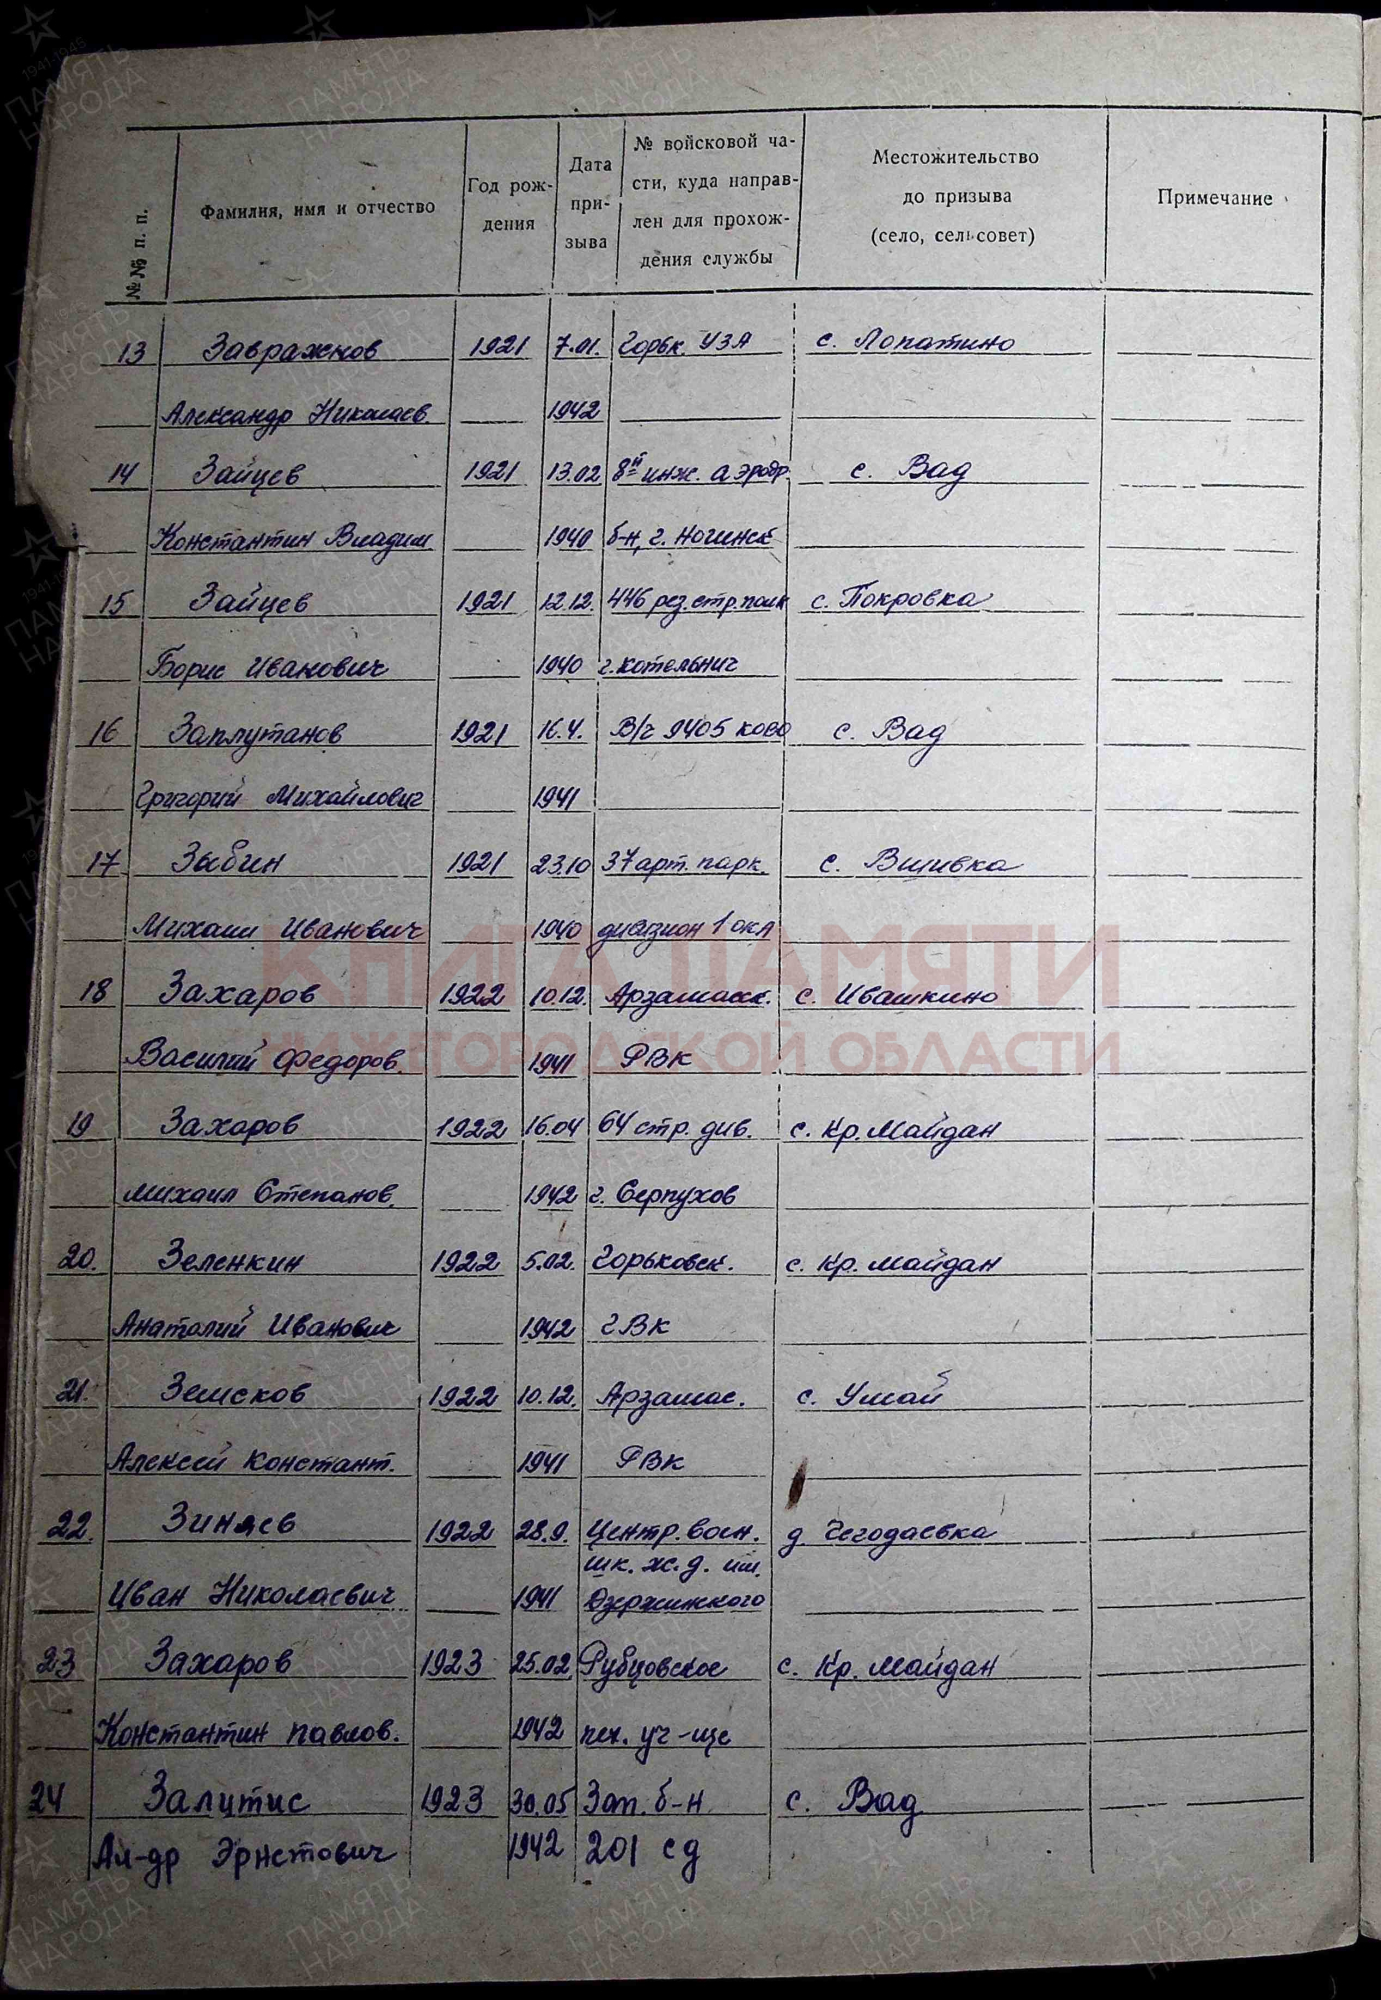 №№ п. п.
Фамилия, имя и отчество
Год рож-
дения
Дата
при-
зыва
№ войсковой ча-
сти, куда направ-
лен для прохож-
дения службы
Местожительство
до призыва
(село, сельсовет)
Примечание
13 Завражнов 1921 7.01. Горьк. УЗА с. Лопатино
Александр Николаев. 1942
14 Зайцев 1921 13.02 8й инж. аэродр. с. Вад
Константин Владим. 1940 б-н, г. Ногинск
15 Зайцев 1921 12.12. 446 рез. стр. полк с. Покровка
Борис Иванович 1940 г. Котельнич
16 Заплутанов 1921 16.4. В/ч 9405 КОВО с. Вад
Григорий Михайлович 1941
17 Зыбин 1921 23.10 37 арт. парк. с. Вшивка
Михаил Иванович 1940 дивизион 1 ОКА
КНИГА ПАМЯТИ
18 Захаров 1922 10.12. Арзамаск. с. Ивашкино
НИЖЕГОРОДСКОЙ ОБЛАСТИ
Василий Федоров. 1941 РВК
19 Захаров 1922 16.04 64 стр. див. с. Кр. Майдан
Михаил Степанов. 1942 г. Серпухов
20. Зеленкин 1922 5.02. Горьковск. с. Кр. Майдан
Анатолий Иванович 1942 ГВК
21. Земсков 1922 10.12. Арзамас. с. Умай
Алексей Констант. 1941 РВК
22. Зиняев 1922 28.9. Центр. воен. д. Чегодаевка
шк. ж.д. им.
Иван Николаевич 1941 Дзержинского
23 Захаров 1923 25.02. Рубцовское с. Кр. Майдан
Константин Павлов. 1942 пех. уч-ще
24 Залитис 1923 30.05 Зап. б-н с. Вад
Ал-др Эрнстович 1942 201 сд
ПАМЯТЬ
НАРОДА
1941-1945